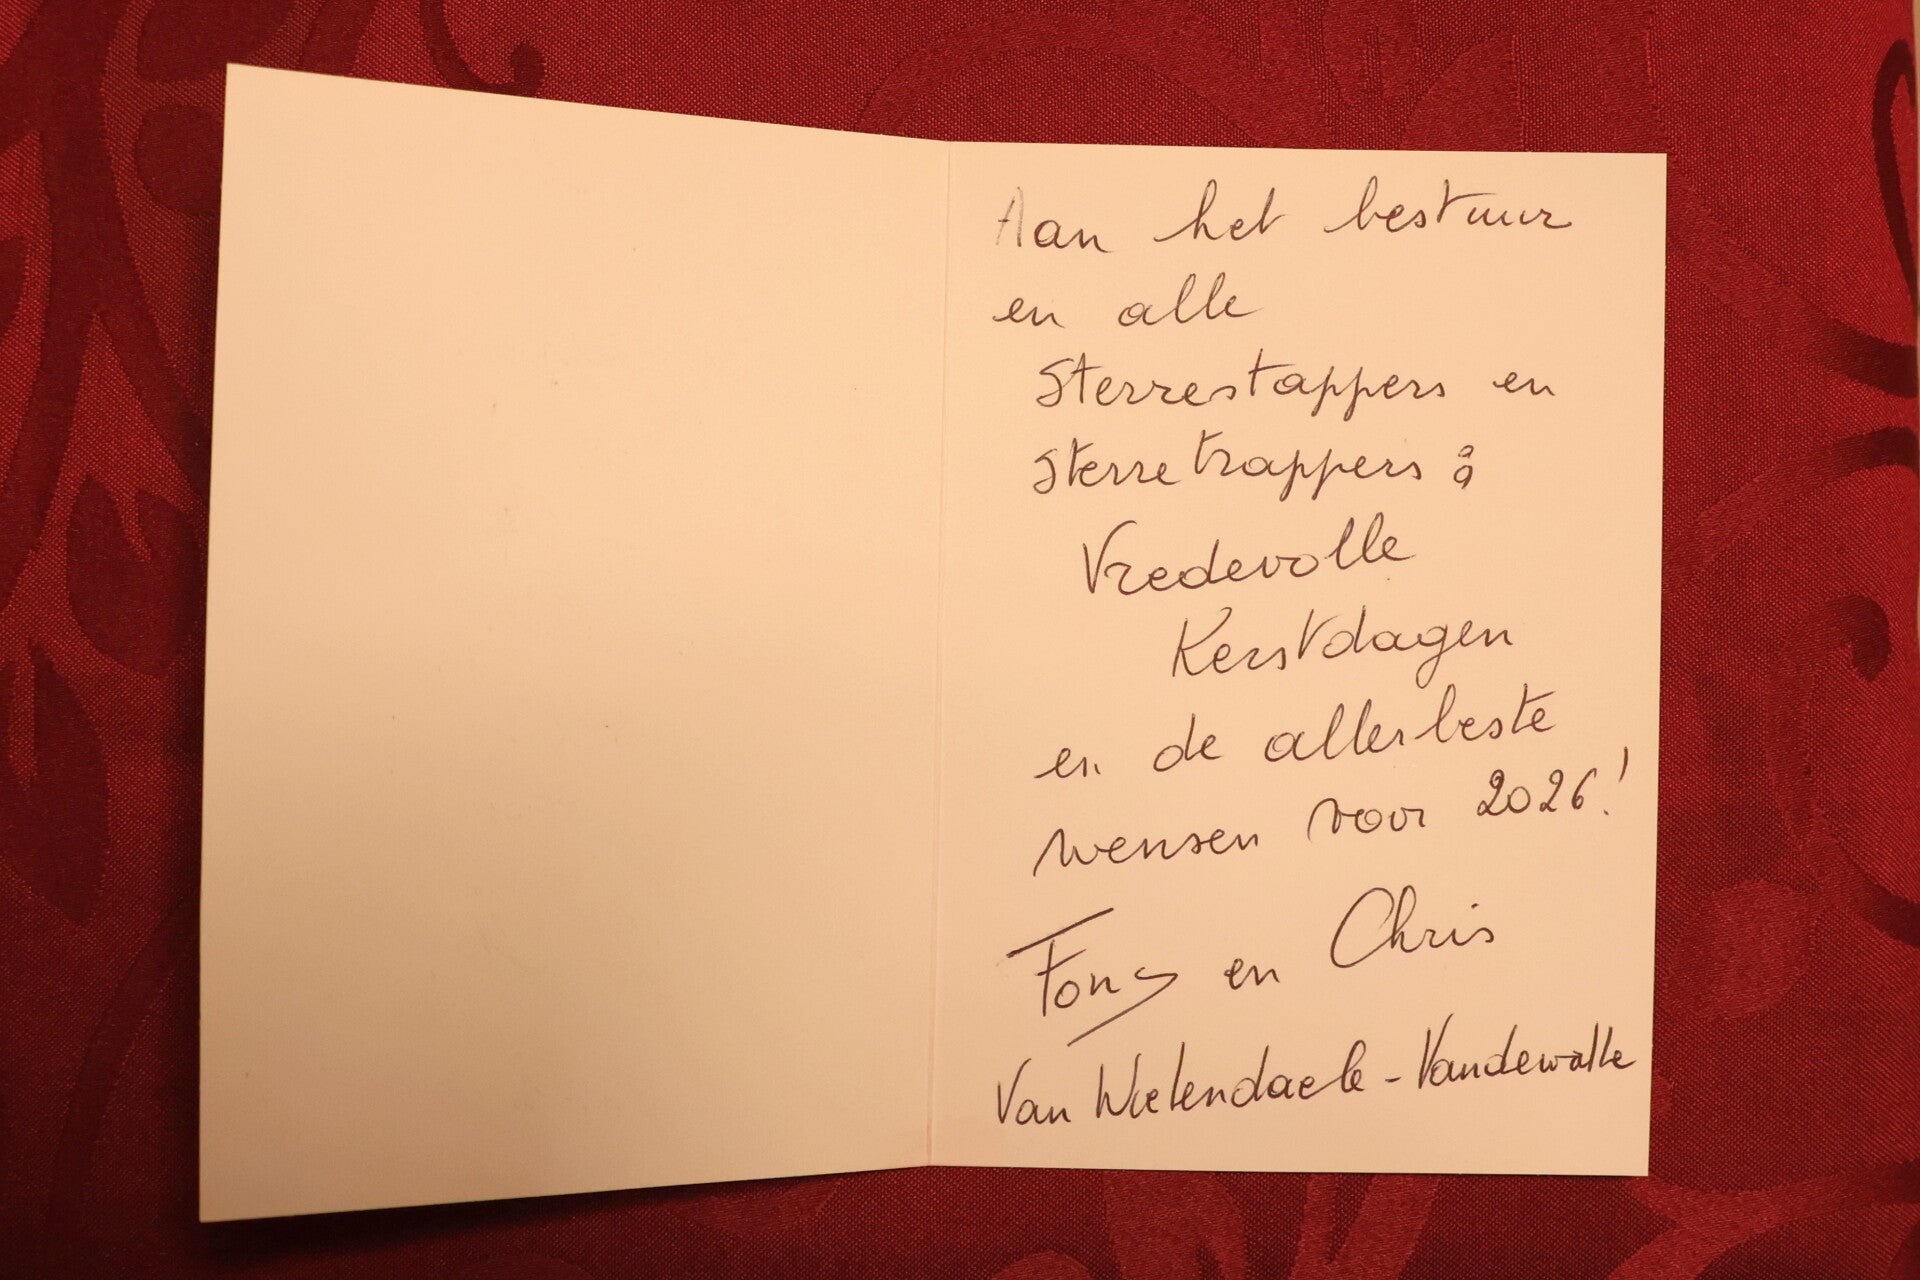 Aan het bestuur
en alle
Sterrestappers en
Sterretrappers :
Vredevolle
Kerstdagen
en de allerbeste
wensen voor 2026!
Fons en Chris
Van Wielendaele - Vandewalle